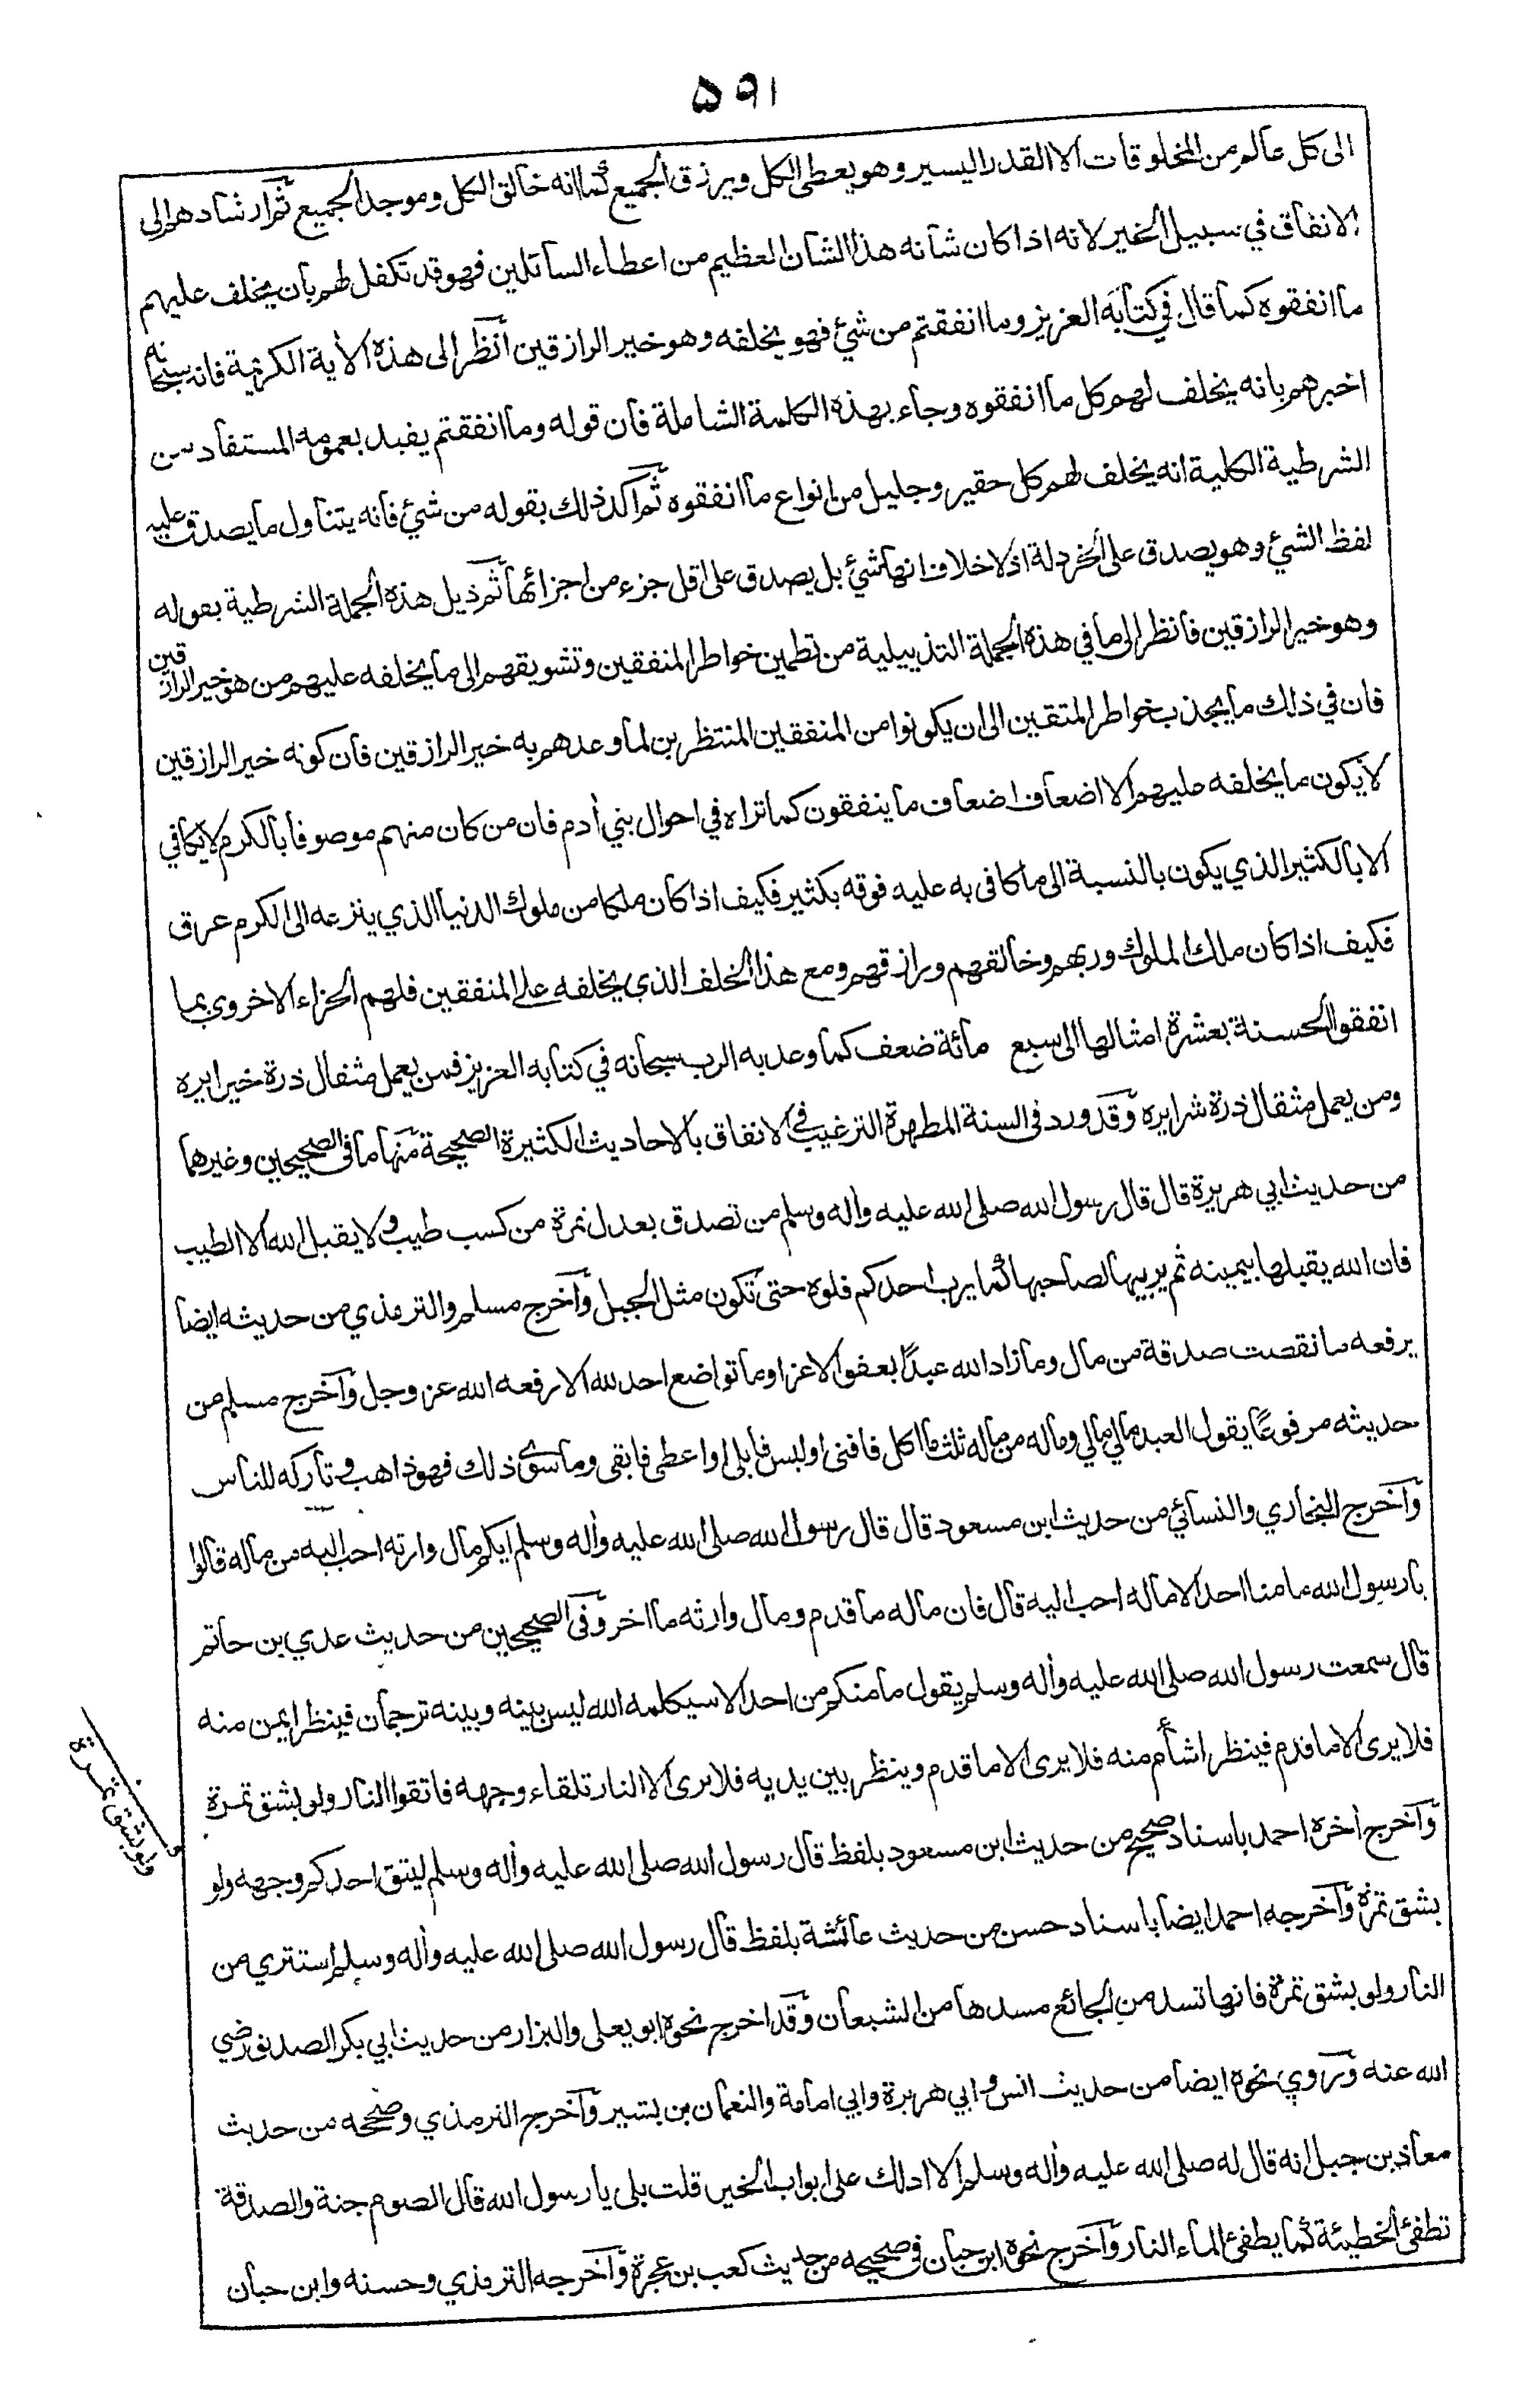 ٥٩١
الى كل عالم من المخلوقات الا القدر اليسير وهو يعطى الكل ويرزق الجميع كما انه خالق الكل وموجد الجميع ثم ارشادهم الى
الانفاق في سبيل الخير لانه اذا كان شأنه هذا الشان العظيم من اعطاء السائلين فهو قد تكفل لهم بأن يخلف عليهم
ما انفقوه كما قال في كتابه العزيز وما انفقتم من شئ فهو يخلفه وهو خير الرازقين انظر الى هذه الأية الكريمة فانه سبحانه
اخبرهم بانه يخلف لهم كل ما انفقوه وجاء بهذه الكلمة الشاملة فان قوله وما انفقتم يفيد بعمومه المستفاد من
الشرطية الكلية انه يخلف لهم كل حقير وجليل من انواع ما انفقوه ثم اكد ذلك بقوله من شئ فانه يتناول ما يصدق عليه
لفظ الشئ وهو يصدق على الخردلة اذ لا خلاف انها شئ بل يصدق على اقل جزء من اجزائها ثم ذيل هذه الجملة الشرطية بقوله
وهو خير الرازقين فانظر الى ما في هذه الجملة التذييلية من تطمين خواطر المنفقين وتشويقهم الى ما يخلفه عليهم من هو خير الرازقين
فان في ذلك ما يجذب خواطر المتقين الى ان يكونوا من المنفقين المنتظرين لما وعدهم به خير الرازقين فان كونه خير الرازقين
لا يكون ما يخلفه عليهم الا اضعاف اضعاف ما ينفقون كما تراه في احوال بني أدم فان من كان منهم موصوفا بالكرم لا يكافي
الا بالكثير الذي يكون بالنسبة الى ما كافى به عليه فوقه بكثير فكيف اذا كان ملكا من ملوك الدنيا الذي ينزعه الى الكرم عرق
فكيف اذا كان ملك الملوك وربهم وخالقهم ورازقهم ومع هذا الخلف الذي يخلفه على المنفقين فلهم الجزاء الاخروي بما
انفقوا الحسنة بعشرة امثالها الى سبع مائة ضعف كما وعد به الرب سبحانه في كتابه العزيز فمن يعمل مثقال ذرة خيرا يره
ومن يعمل مثقال ذرة شرا يره وقد ورد في السنة المطهرة الترغيب في الانفاق بالاحاديث الكثيرة الصحيحة منها ما في الصحيحين وغيرهما
من حديث ابي هريرة قال قال رسول الله صلى الله عليه وأله وسلم من تصدق بعدل تمرة من كسب طيب ولا يقبل الله الا الطيب
فان الله يقبلها بيمينه ثم يربيها لصاحبها كما يرب احدكم فلوه حتى تكون مثل الجبل وأخرج مسلم والترمذي من حديثه ايضا
يرفعه ما نقصت صدقة من مال وما زاد الله عبدًا بعفو الا عزا وما تواضع احد لله الا رفعه الله عز وجل وأخرج مسلم من
حديثه مرفوعًا يقول العبد مالي مالي وماله من ماله ثلث ما اكل فافنى او لبس فابلى او اعطى فابقى وما سوى ذلك فهو ذاهب وتاركه للناس
وأخرج البخاري والنسائي من حديث ابن مسعود قال قال رسول الله صلى الله عليه وأله وسلم ايكم مال وارثه احب اليه من ماله قالوا
يا رسول الله ما منا احد الا ماله احب اليه قال فان ماله ما قدم ومال وارثه ما اخر وفى الصحيحين من حديث عدي بن حاتم
قال سمعت رسول الله صلى الله عليه وأله وسلم يقول ما منكم من احد الا سيكلمه الله ليس بينه وبينه ترجمان فينظر ايمن منه
فلا يرى الا ما قدم فينظر اشأم منه فلا يرى الا ما قدم وينظر بين يديه فلا يرى الا النار تلقاء وجهه فاتقوا النار ولو بشق تمرة
وأخرج أخره احمد باسناد صحيح من حديث ابن مسعود بلفظ قال رسول الله صلى الله عليه وأله وسلم ليتق احدكم وجهه ولو
بشق تمرة وأخرجه احمد ايضا باسناد حسن من حديث عائشة بلفظ قال رسول الله صلى الله عليه وأله وسلم إستتري من
النار ولو بشق تمرة فانها تسد من الجائع مسدها من الشبعان وقد اخرج نحوه ابو يعلى والبزار من حديث ابي بكر الصديق رضي
الله عنه وروي نحوه ايضا من حديث انس وابي هريرة وابي امامة والنعمان بن بشير وأخرج الترمذي وصححه من حديث
معاذ بن جبل انه قال له صلى الله عليه وأله وسلم الا ادلك على ابواب الخير قلت بلى يا رسول الله قال الصوم جنة والصدقة
تطفئ الخطيئة كما يطفئ الماء النار وأخرج نحوه ابن حبان في صحيحه من حديث كعب بن عجرة وأخرجه الترمذي وحسنه وابن حبان
ولو بشق تمرة